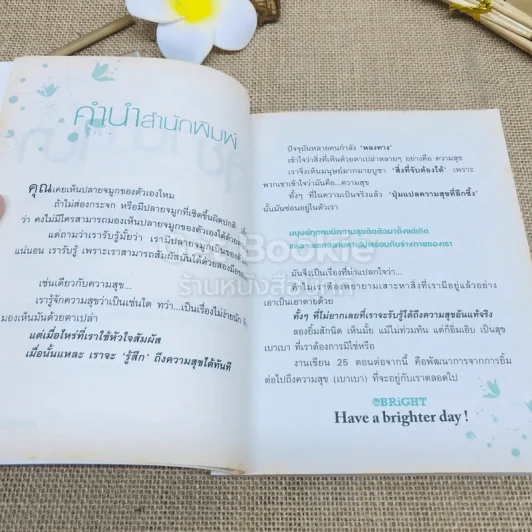 คำนำสำนักพิมพ์
คุณเคยเห็นปลายจมูกของตัวเองไหม
ถ้าไม่ส่องกระจก หรือมีปลายจมูกที่เชิดขึ้นผิดปกติ
ว่า คงไม่มีใครสามารถมองเห็นปลายจมูกของตัวเองได้ด้วย
แต่ถามว่าเรารับรู้มั้ยว่า เรามีปลายจมูกเป็นของ
แน่นอน เรารับรู้ เพราะเราสามารถสัมผัสมันได้ด้วยสองมือ
เช่นเดียวกับความสุข...
เรารู้จักความสุขว่าเป็นเช่นใด ทว่า...เป็นเรื่องไม่ง่ายนัก
มองเห็นมันด้วยตาเปล่า
แต่เมื่อไหร่ที่เราใช้หัวใจสัมผัส
เมื่อนั้นแหละ เราจะ 'รู้สึก' ถึงความสุขได้ทันที
ปัจจุบันหลายคนกำลัง 'หลงทาง'
เข้าใจว่าสิ่งที่เห็นด้วยตาเปล่าหลายๆ อย่างคือ ความสุข
เราจึงเห็นมนุษย์มากมายบูชา 'สิ่งที่จับต้องได้' เพราะ
พวกเขาเข้าใจว่ามันคือ...ความสุข
ทั้งๆ ที่ในความเป็นจริงแล้ว 'ปุ่มแปลความสุขที่ลึกซึ้ง'
นั้นมันซ่อนอยู่ในตัวเรา
มนุษย์ทุกคนมีความสุขติดตัวมาตั้งแต่เกิด
มันจึงเป็นเรื่องที่น่าแปลกใจว่า...
ทำไมเราต้องพยายามเสาะหาสิ่งที่เรามีอยู่แล้วอย่าง
เอาเป็นเอาตายด้วย
ทั้งๆ ที่ไม่ยากเลยที่เราจะรับรู้ได้ถึงความสุขอันแท้จริง
ลองยิ้มสักนิด เห็นมั้ย แม้ไม่ท่วมท้น แต่ก็อิ่มเอิบ เป็นสุข
เบาเบา ที่เราต้องการมิใช่หรือ
งานเขียน 25 ตอนต่อจากนี้ คือพัฒนาการจากการยิ้ม
ต่อไปถึงความสุข (เบาเบา) ที่จะอยู่กับเราตลอดไป
BRiGHT
Have a brighter day !
Bookie
ร้านหนังสือ